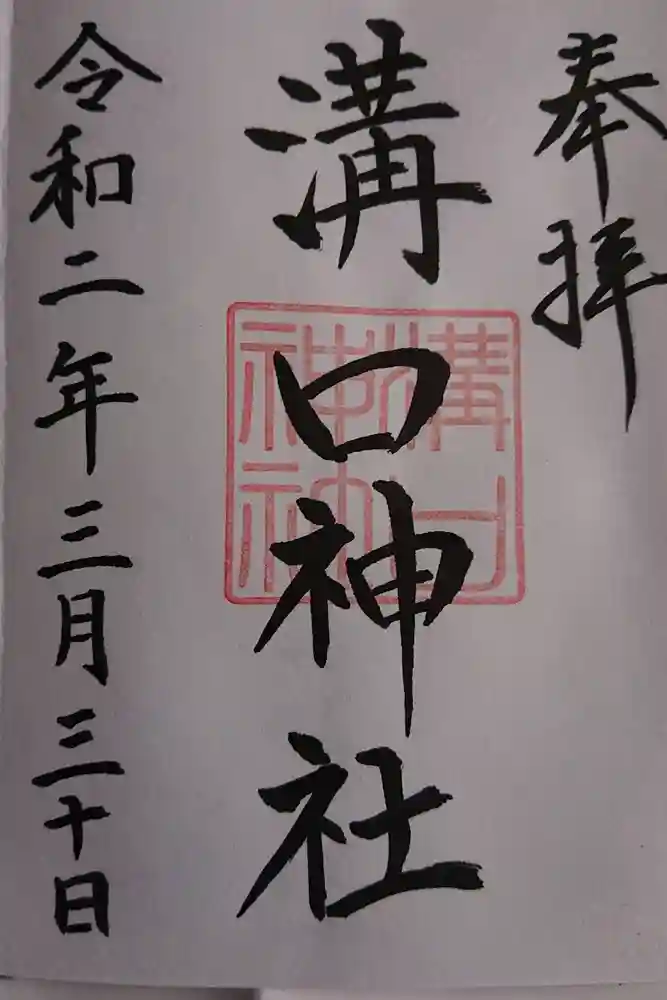 奉拝
溝口神社
溝口神社
令和二年三月三十日